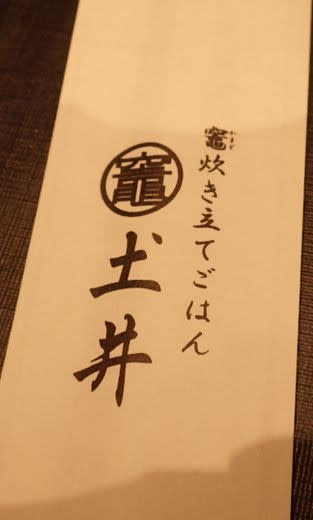 竈炊き立てごはん
かまど
竈
土井